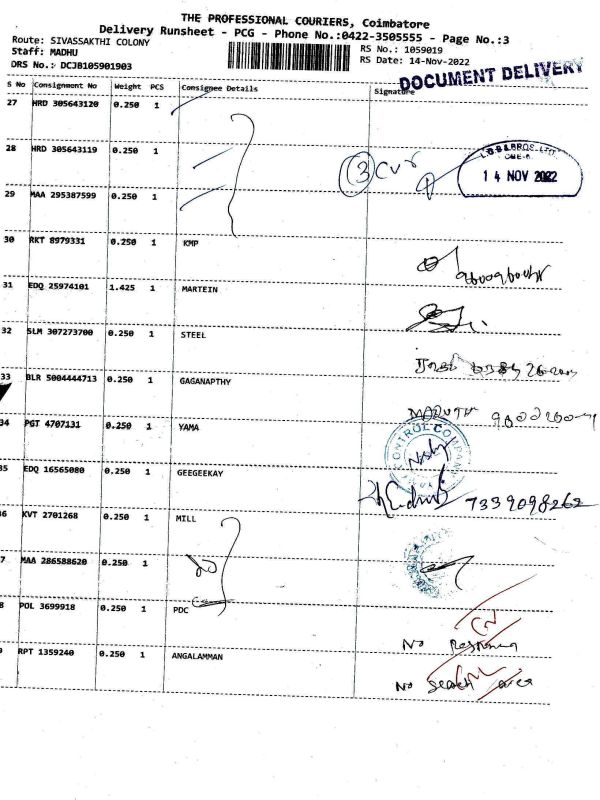 THE PROFESSIONAL COURIERS, Coimbatore
Delivery Runsheet - PCG - Phone No.:0422-3505555 - Page No.:3
Route: SIVASSAKTHI COLONY
RS No.: 1059019
Staff: MADHU
RS Date: 14-Nov-2022
DRS No.: DCJB105901903
DOCUMENT DELIVERY
S No Consignment No Weight PCS Consignee Details Signature
27 HRD 305643120 0.250 1
28 HRD 305643119 0.250 1
3
14 NOV 2022
29 MAA 295387599 0.250 1
30 RKT 8979331 0.250 1 KMP
31 EDQ 25974101 1.425 1 MARTEIN
32 SLM 307273700 0.250 1 STEEL
33 BLR 5004444713 0.250 1 GAGANAPTHY
34 PGT 4707131 0.250 1 YAMA
CONTROL COMPANY
35 EDQ 16565080 0.250 1 GEEGEEKAY
7339098262
36 KVT 2701268 0.250 1 MILL
7 MAA 286588620 0.250 1
8 POL 3699918 0.250 1 PDC
No
9 RPT 1359240 0.250 1 ANGALAMMAN
No search area